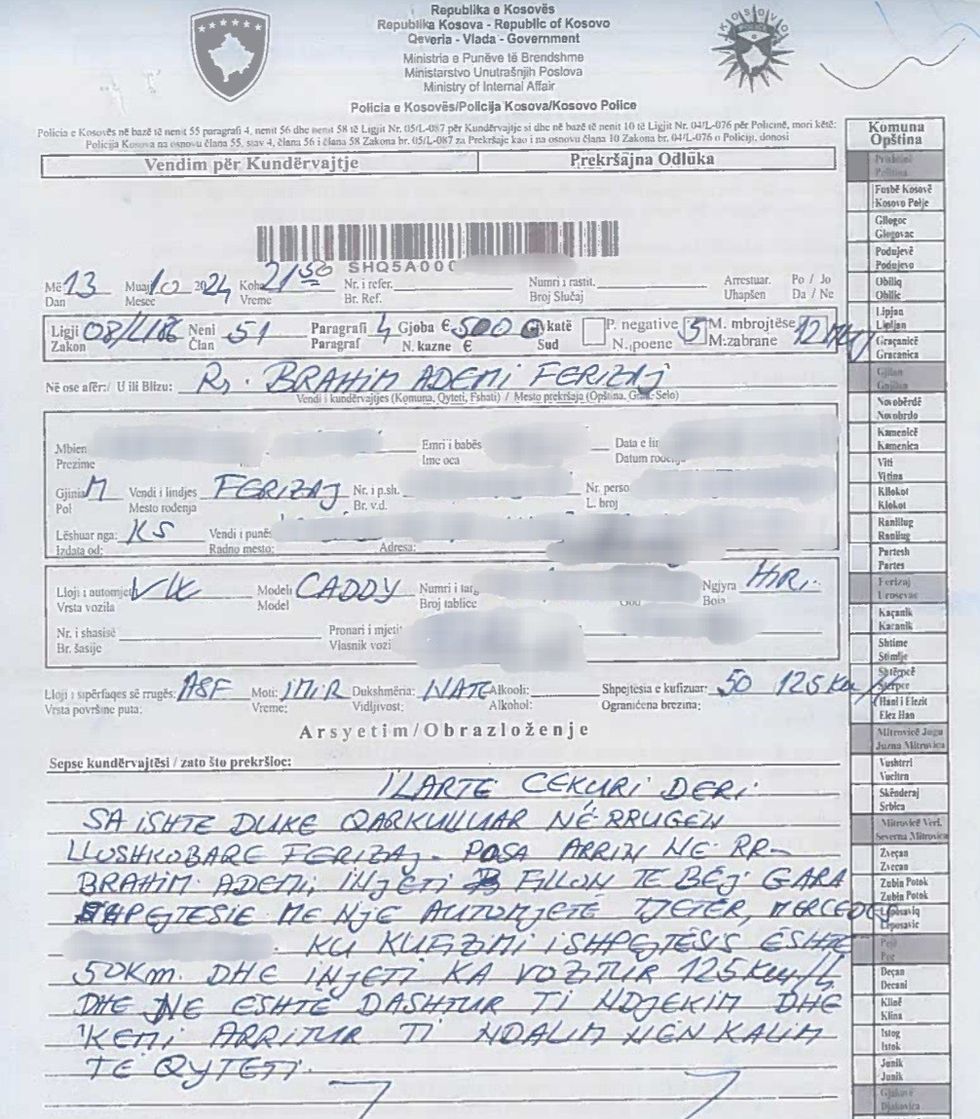 Republika e Kosovës
Republika Kosova - Republic of Kosovo
Qeveria - Vlada - Government
Ministria e Punëve të Brendshme
Ministarstvo Unutrašnjih Poslova
Ministry of Internal Affair
Policia e Kosovës/Policija Kosova/Kosovo Police
KOSOVO
POLICE
Policia e Kosovës në bazë të nenit 55 paragrafi 4, nenit 56 dhe nenit 58 të Ligjit Nr. 05/L-087 për Kundërvajtje si dhe në bazë të nenit 10 të Ligjit Nr. 04/L-076 për Policinë, mori këtë:
Policija Kosova na osnovu člana 55, stav 4, člana 56 i člana 58 Zakona br. 05/L-087 za Prekršaje kao i na osnovu člana 10 Zakona br. 04/L-076 o Policiji, donosi
Vendim për Kundërvajtje Prekršajna Odlúka
SHQ5A000
Më 13 Muaj 10 2024 Koha 21:50 Nr. i refer. Numri i rastit. Arrestuar. Po / Jo
Dan Mesec Vreme Br. Ref. Broj Slučaj Uhapšen Da / Ne
Ligji 08/L-186 Neni 51 Paragrafi 4 Gjoba € 500 Gjykatë P. negative 5 M. mbrojtëse 12
Zakon Član Paragraf N. kazne € Sud N. poene M:zabrane
Në ose afër:/ U ili Blizu: Rr. BRAHIM ADEMI FERIZAJ
Vendi i kundërvajtjes (Komuna, Qyteti, Fshati) / Mesto prekršaja (Opština, Grad, Selo)
Mbien Emri i babës Data e lin
Prezime Ime oca Datum rođenja
Gjinia M Vendi i lindjes FERIZAJ Nr. i p.sh. Nr. perso
Pol Mesto rođenja Br. v.d. L. broj
Lëshuar nga: KS Vendi i punës
Izdata od: Radno mesto: Adresa:
Lloji i automjeti VW Modeli CADDY Numri i targ Ngjyra HIRI.
Vrsta vozila Model Broj tablice God Boja
Nr. i shasisë Pronari i mjeti
Br. šasije Vlasnik vozi
Lloji i sipërfaqes së rrugës: ASF Moti: IMIR Dukshmëria: NATE Alkooli: Shpejtësia e kufizuar: 50 125 Km/
Vrsta površine puta: Vreme: Vidljivost: Alkohol: Ograničena brezina:
Arsyetim/Obrazloženje
Sepse kundërvajtësi / zato što prekršioc:
ILARTE CEKURI DERI
SA ISHTE DUKE QARKULLUAR NË RRUGEN
LLUSHKOBARE FERIZAJ. POSA ARRIN NE RR-
BRAHIM ADEMI, INJETI FILLON TE BEJ GARA
SHPEJTESIE ME NJE AUTOMJETE TJETER, MERCEDES
KU KUFIZIMI ISHPEJTËSIS ËSHTE
50Km. DHE INJETI KA VOZITUR 125 Km/h
DHE NE ESHTË DASHTUR TI NDJEKIM DHE
KEMI ARRITUR TI NDALIM NËN KALIM
TË QYTETI.
Komuna
Opština
Prishtinë
Priština
Fushë Kosovë
Kosovo Polje
Gllogoc
Glogovac
Podujevë
Podujevo
Obiliq
Obilic
Lipjan
Lipljan
Graçanicë
Gracanica
Gjilan
Gnjilan
Novobërdë
Novobrdo
Kamenicë
Kamenica
Viti
Vitina
Kllokot
Klokot
Ranillug
Ranilug
Partesh
Partes
Ferizaj
Urosevac
Kaçanik
Kacanik
Shtime
Stimlje
Shtërpcë
Sterpce
Hani i Elezit
Elez Han
Mitrovicë Jugu
Juzna Mitrovica
Vushtrri
Vucitrn
Skënderaj
Srbica
Mitrovicë Veri.
Severna Mitrovica
Zveçan
Zvecan
Zubin Potok
Zubin Potok
Leposaviq
Leposavic
Pejë
Pec
Deçan
Decani
Klinë
Klina
Istog
Istok
Junik
Junik
Gjakovë
Djakovica